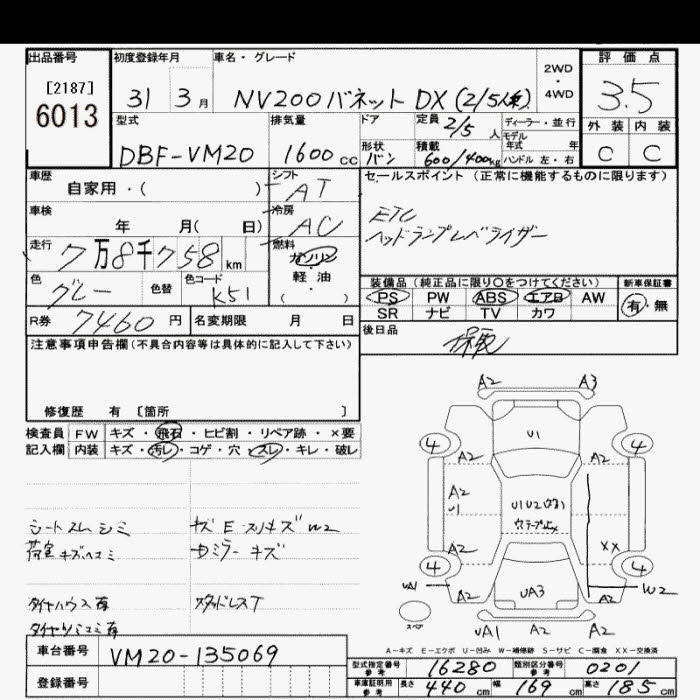 出品番号 初度登録年月 車名・グレード 2WD・4WD 評価点
[2187]
6013
31 3月 NV200バネット DX (2/5人乗) 3.5
型式 排気量 ドア 定員 2/5人 ディーラー・並行 外装 内装
モデル年式 年
DBF-VM20 1600cc 形状 バン 積載 600/400kg ハンドル 左・右 C C
車歴 シフト セールスポイント (正常に機能するものに限ります)
自家用・( ) AT
車検 冷房 ETC
年 月( 日) AC ヘッドランプレベライザー
走行 燃料
7万8千758km ガソリン
色 色替 色コード 軽・油
グレー K51 ( )
装備品 (純正品に限り○をつけてください) 新車保証書
PS PW ABS エアB AW 有・無
SR ナビ TV カワ
R券 7460円 名変期限 月 日 後日品
注意事項申告欄(不具合内容等は具体的に記入して下さい) 保取
修復歴 有 〔箇所 〕
検査員 FW キズ・飛石・ヒビ割・リペア跡・×要
記入欄 内装 キズ・汚レ・コゲ・穴・スレ・キレ・破レ
A2 A3
U1
4 4
A2 A2
A2
U1
U1U2
A2 XX
4 4
UA1 A2 UA3 A2 W2
スペア
UA1 A2 A2
シートスレシミ キズ E スリキズ W2
荷室キズヘコミ サミラーキズ
タイヤハウス有 スタッドレスT
A-キズ E-エクボ U-凹み W-補修跡 S-サビ C-腐食 XX-交換済
車台番号 VM20-135069
登録番号
型式指定番号 参考 16280 類別区分番号 参考 0201
車庫証明用 参考 長さ 440cm 幅 169cm 高さ 185cm